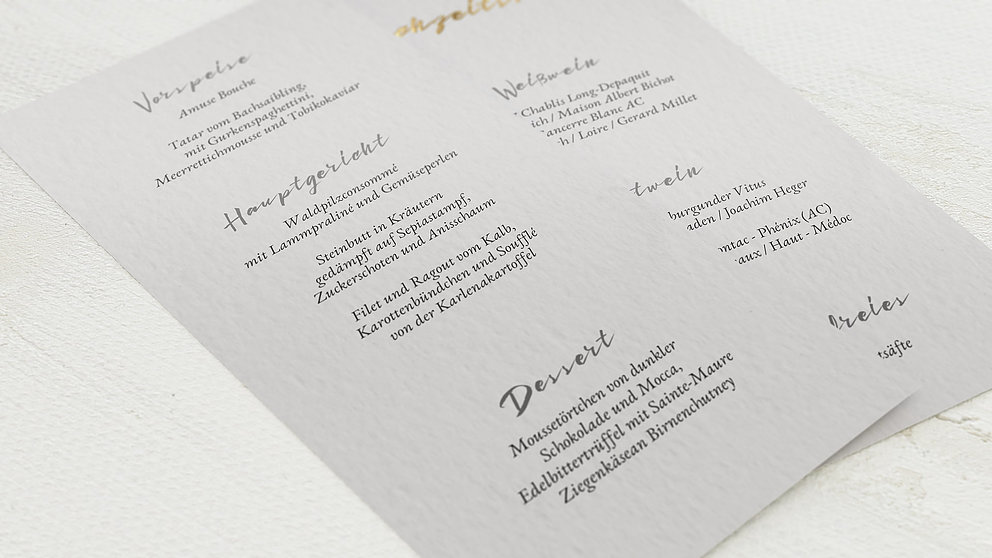 Vorspeise
Amuse Bouche
Tatar vom Bachsaibling,
mit Gurkenspaghettini,
Meerrettichmousse und Tobikokaviar
Hauptgericht
Waldpilzconsommé
mit Lammpraliné und Gemüseperlen
Steinbutt in Kräutern
gedämpft auf Sepiastampf,
Zuckerschoten und Anisschaum
Filet und Ragout vom Kalb,
Karottenbündchen und Soufflé
von der Karlenakartoffel
Dessert
Moussetörtchen von dunkler
Schokolade und Mocca,
Edelbittertrüffel mit Sainte-Maure
Ziegenkäsean Birnenchutney
Weißwein
Chablis Long-Depaquit
ich / Maison Albert Bichot
ancerre Blanc AC
h / Loire / Gerard Millet
twein
burgunder Vitus
aden / Joachim Heger
mtac - Phénix (AC)
aux / Haut - Médoc
freies
tsäfte